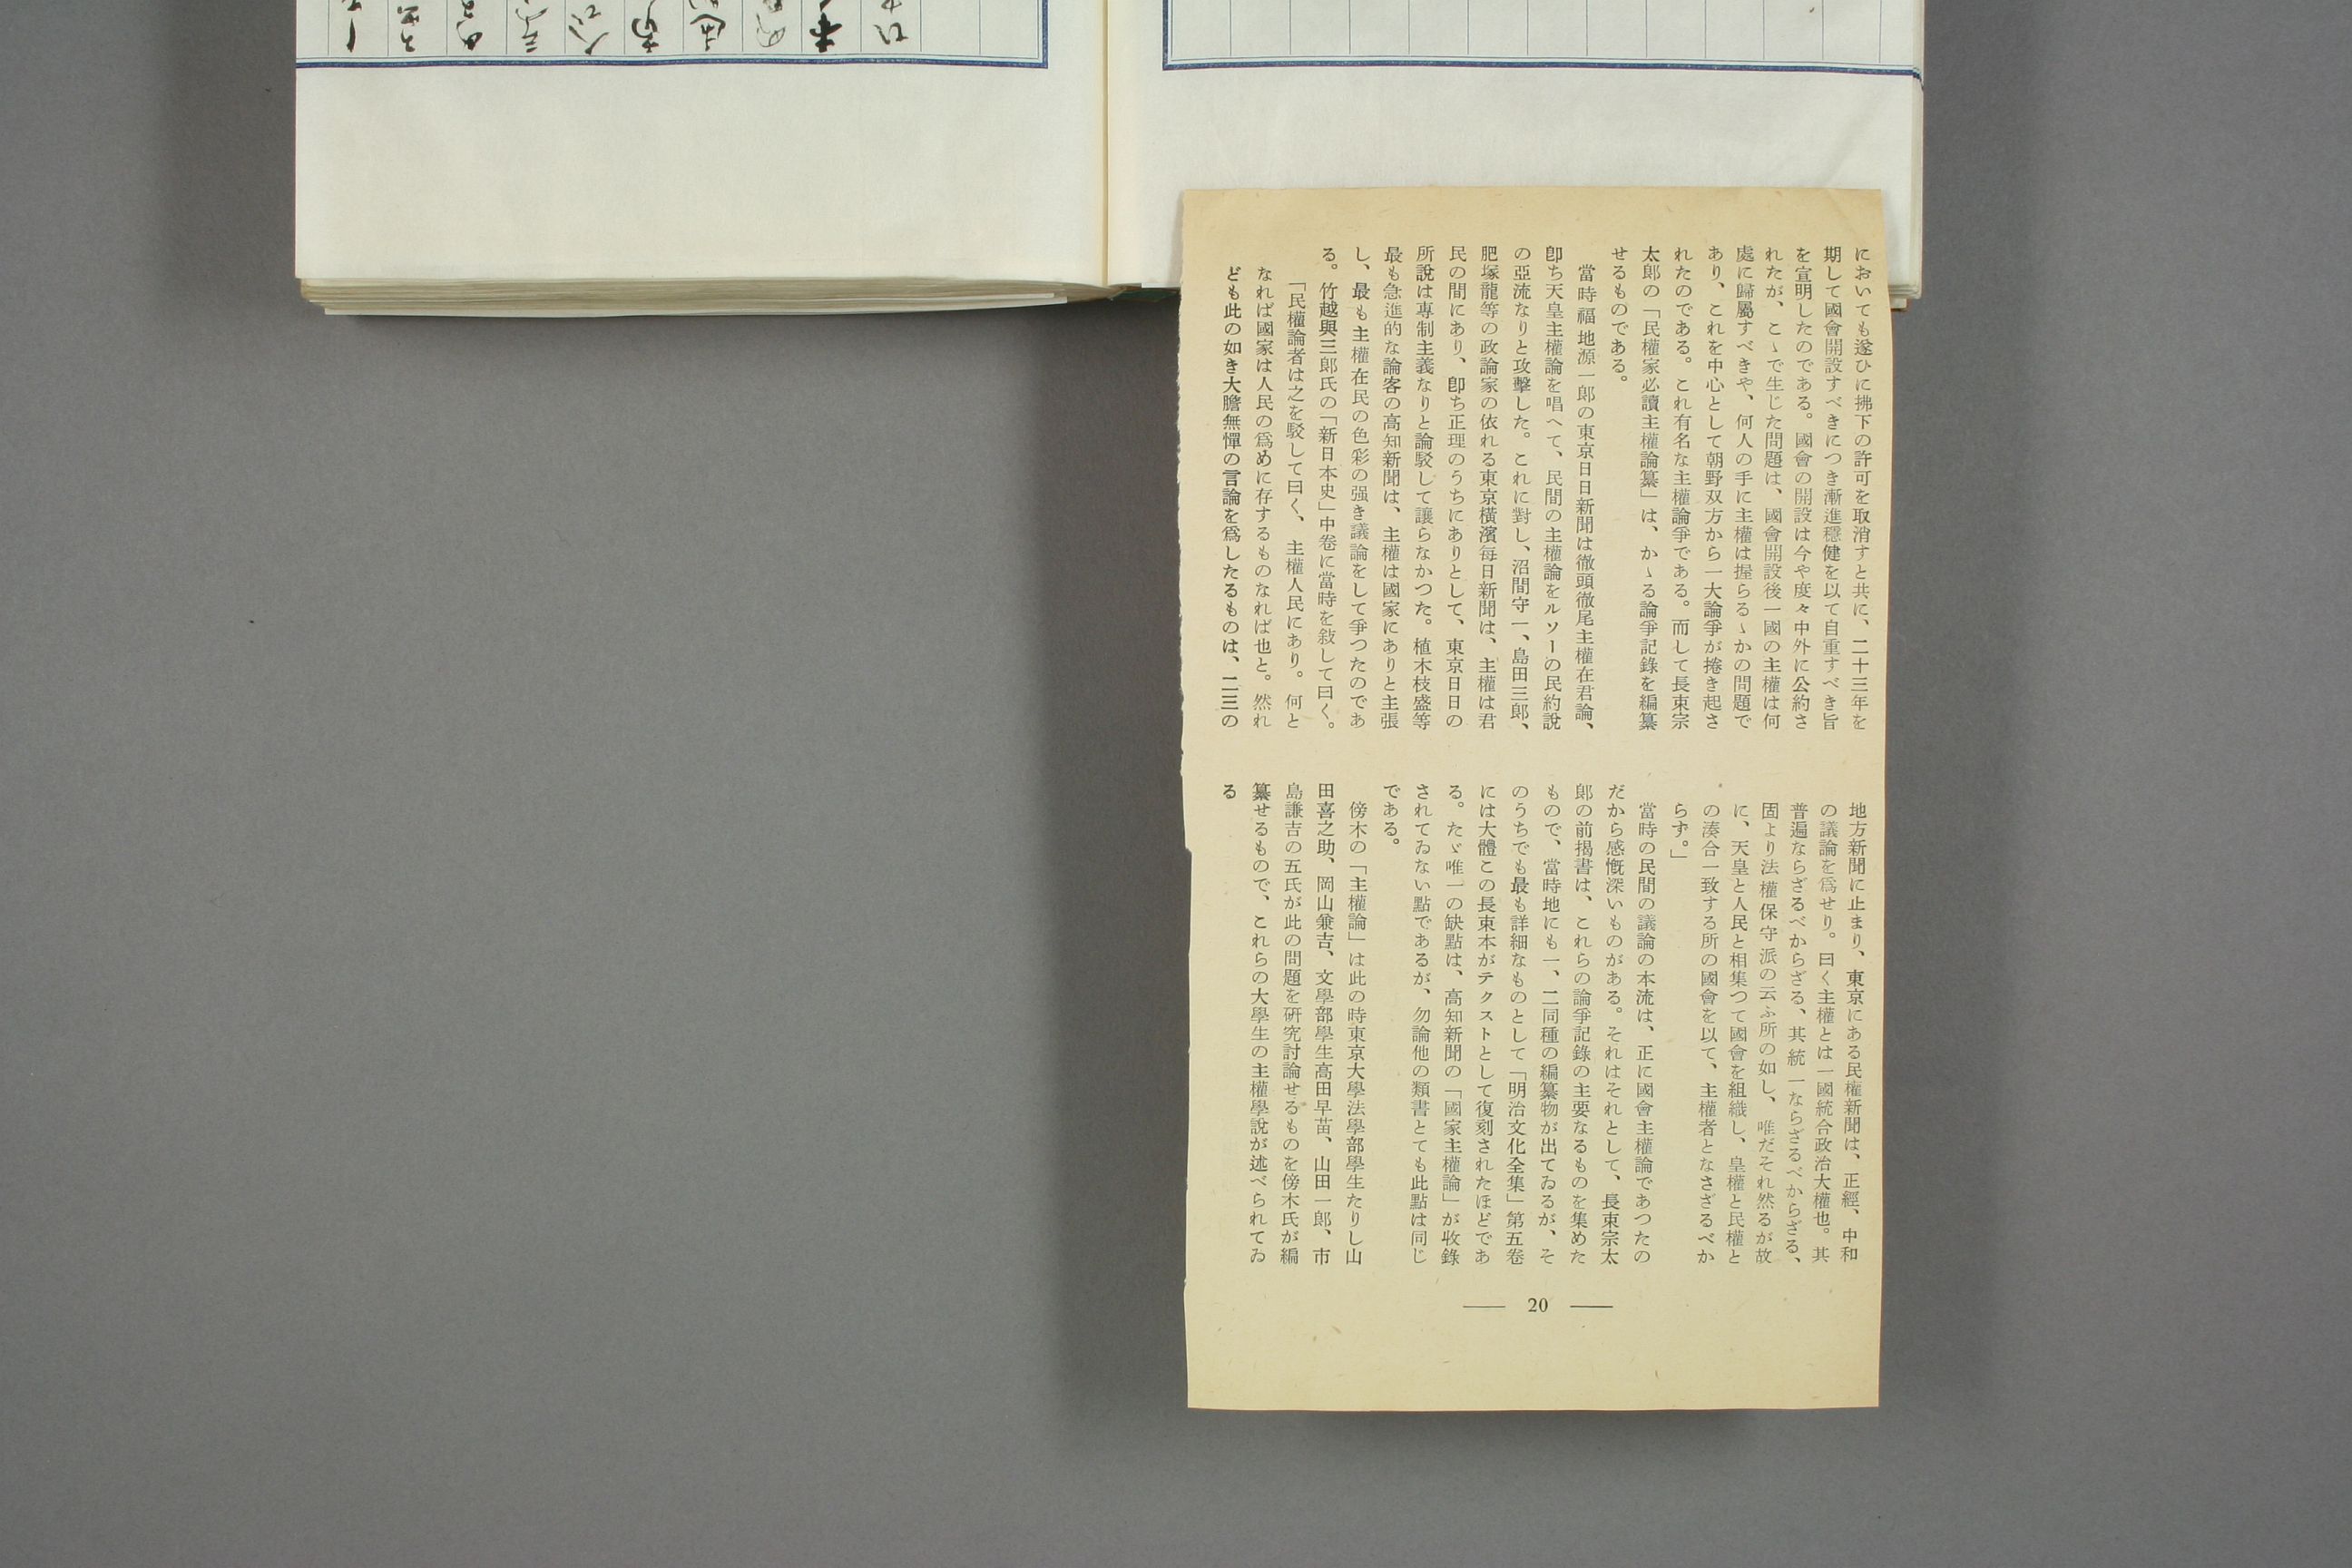 においても遂ひに拂下の許可を取消すと共に、二十三年を
期して國會開設すべきにつき漸進穩健を以て自重すべき旨
を宣明したのである。國會の開設は今や度々中外に公約さ
れたが、こゝで生じた問題は、國會開設後一國の主權は何
處に歸屬すべきや、何人の手に主權は握らるゝかの問題で
あり、これを中心として朝野双方から一大論爭が捲き起さ
れたのである。これ有名な主權論爭である。而して長束宗
太郎の「民權家必讀主權論纂」は、かゝる論爭記錄を編纂
せるものである。
當時福地源一郎の東京日日新聞は徹頭徹尾主權在君論、
卽ち天皇主權論を唱へて、民間の主權論をルソーの民約說
の亞流なりと攻擊した。これに對し、沼間守一、島田三郎、
肥塚龍等の政論家の依れる東京橫濱每日新聞は、主權は君
民の間にあり、卽ち正理のうちにありとして、東京日日の
所說は專制主義なりと論駁して讓らなかつた。植木枝盛等
最も急進的な論客の高知新聞は、主權は國家にありと主張
し、最も主權在民の色彩の强き議論をして爭つたのであ
る。竹越與三郎氏の「新日本史」中卷に當時を敍して曰く。
「民權論者は之を駁して曰く、主權人民にあり。何と
なれば國家は人民の爲めに存するものなれば也と。然れ
ども此の如き大膽無憚の言論を爲したるものは、二三の
地方新聞に止まり、東京にある民權新聞は、正經、中和
の議論を爲せり。曰く主權とは一國統合政治大權也。其
普遍ならざるべからざる、其統一ならざるべからざる、
固より法權保守派の云ふ所の如し、唯だそれ然るが故
に、天皇と人民と相集つて國會を組織し、皇權と民權と
の湊合一致する所の國會を以て、主權者となさざるべか
らず。」
當時の民間の議論の本流は、正に國會主權論であつたの
だから感慨深いものがある。それはそれとして、長束宗太
郎の前揭書は、これらの論爭記錄の主要なるものを集めた
もので、當時地にも一、二同種の編纂物が出てゐるが、そ
のうちでも最も詳細なものとして「明治文化全集」第五卷
には大體この長束本がテクストとして復刻されたほどであ
る。たゞ唯一の缺點は、高知新聞の「國家主權論」が收錄
されてゐない點であるが、勿論他の類書とても此點は同じ
である。
傍木の「主權論」は此の時東京大學法學部學生たりし山
田喜之助、岡山兼吉、文學部學生高田早苗、山田一郎、市
島謙吉の五氏が此の問題を硏究討論せるものを傍木氏が編
纂せるもので、これらの大學生の主權學說が述べられてゐ
る
20